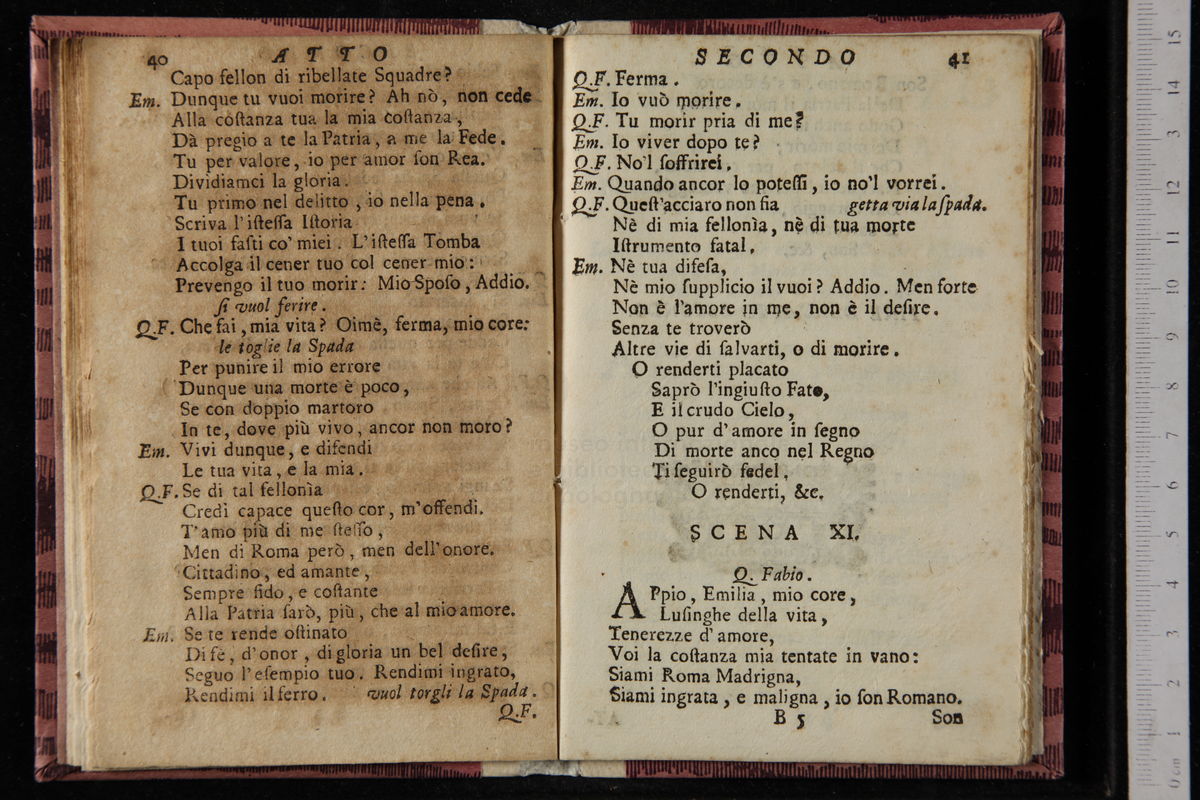 40 ATTO
Capo fellon di ribellate Squadre?
Em. Dunque tu vuoi morire? Ah nò, non cede
Alla coſtanza tua la mia coſtanza,
Dà pregio a te la Patria, a me la Fede.
Tu per valore, io per amor ſon Rea.
Dividiamci la gloria.
Tu primo nel delitto, io nella pena.
Scriva l'iſteſſa Iſtoria
I tuoi faſti co' miei. L'iſteſſa Tomba
Accolga il cener tuo col cener mio:
Prevengo il tuo morir: Mio Spoſo, Addio.
ſi vuol ferire.
Q.F. Che fai, mia vita? Oimè, ferma, mio core:
le toglie la Spada
Per punire il mio errore
Dunque una morte è poco,
Se con doppio martoro
In te, dove più vivo, ancor non moro?
Em. Vivi dunque, e difendi
Le tua vita, e la mia.
Q.F. Se di tal fellonìa
Credi capace queſto cor, m'offendi.
T'amo più di me ſteſſo,
Men di Roma però, men dell'onore.
Cittadino, ed amante,
Sempre fido, e coſtante
Alla Patria ſarò, più, che al mio amore.
Em. Se te rende oſtinato
Di fè, d'onor, di gloria un bel deſire,
Seguo l'eſempio tuo. Rendimi ingrato,
Rendimi il ferro. vuol torgli la Spada.
Q.F.
SECONDO 41
Q.F. Ferma.
Em. Io vuò morire.
Q.F. Tu morir pria di me?
Em. Io viver dopo te?
Q.F. No'l ſoffrirei.
Em. Quando ancor lo poteſſi, io no'l vorrei.
Q.F. Queſt'acciaro non ſia getta via la ſpada.
Nè di mia fellonìa, nè di tua morte
Iſtrumento fatal.
Em. Nè tua difeſa,
Nè mio ſupplicio il vuoi? Addio. Men forte
Non è l'amore in me, non è il deſire.
Senza te troverò
Altre vie di ſalvarti, o di morire.
O renderti placato
Saprò l'ingiuſto Fato,
E il crudo Cielo,
O pur d'amore in ſegno
Di morte anco nel Regno
Ti ſeguirò fedel.
O renderti, &c.
SCENA XI.
Q. Fabio.
APpio, Emilia, mio core,
Luſinghe della vita,
Tenerezze d'amore,
Voi la coſtanza mia tentate in vano:
Siami Roma Madrigna,
Siami ingrata, e maligna, io ſon Romano.
B 5 Son